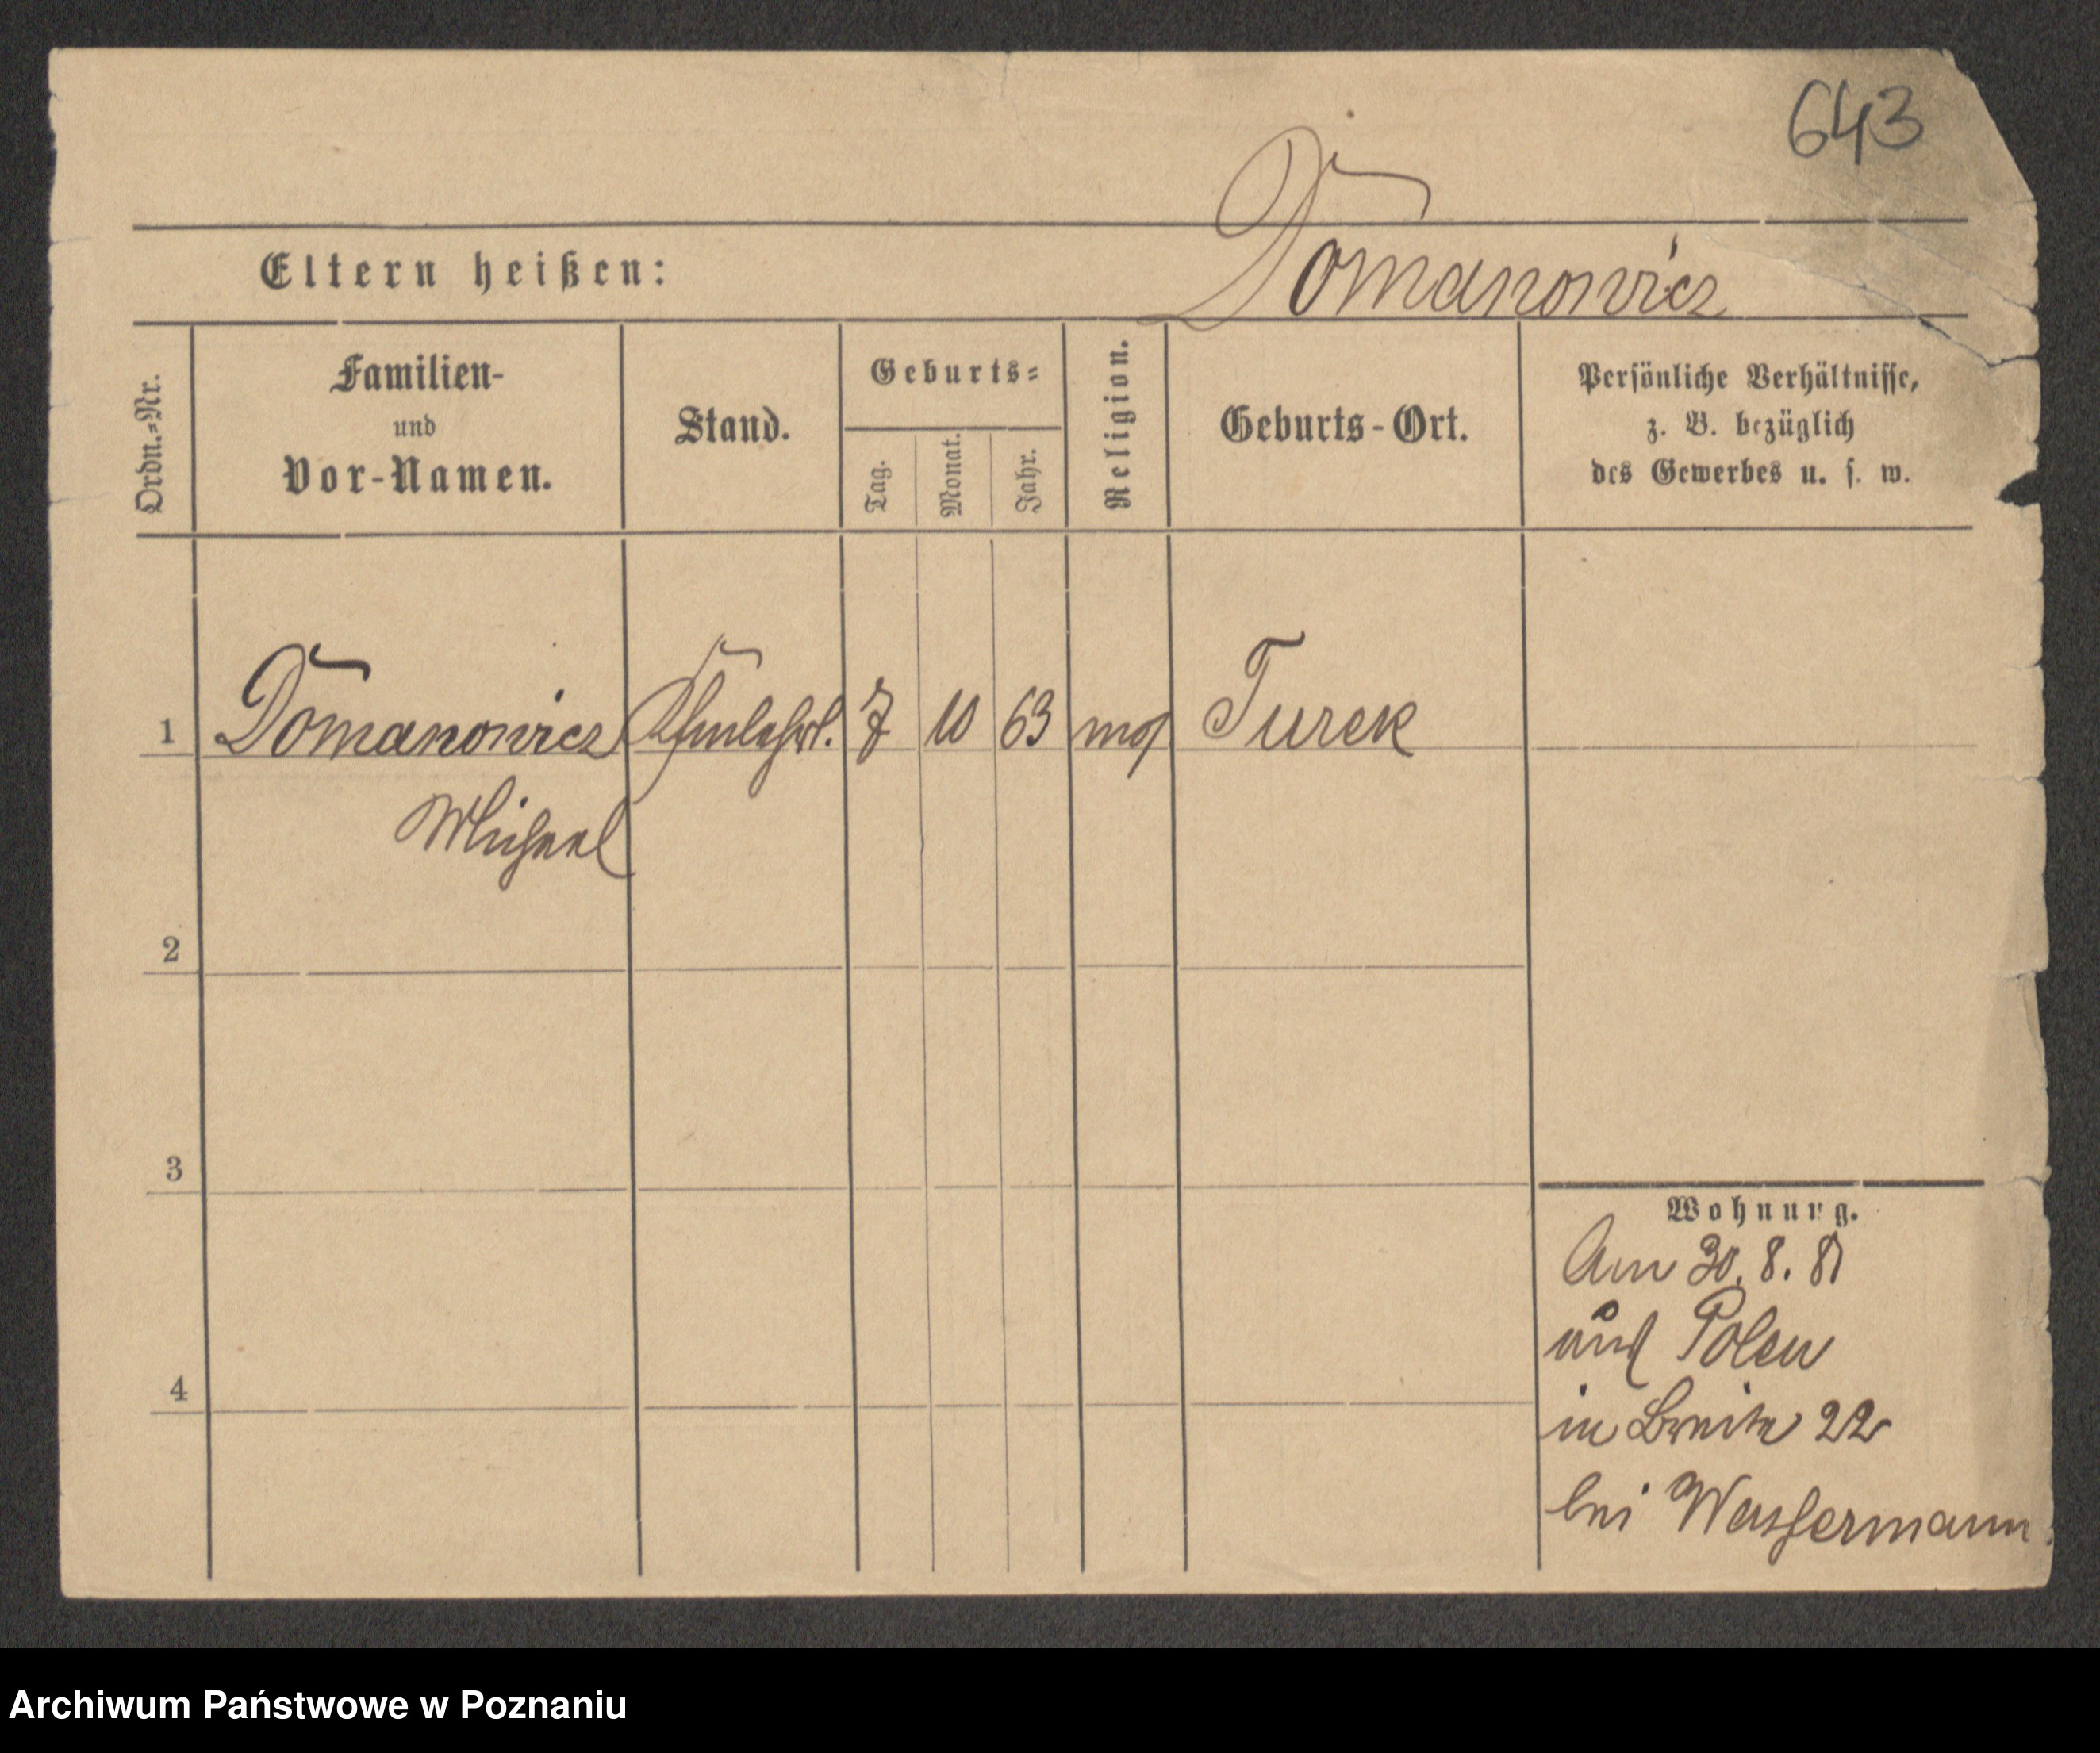 643
Domanowicz
Eltern heißen:
Ordn.-Nr.
Familien-
und
Vor-Namen.
Stand.
Geburts-
Tag.
Monat.
Jahr.
Religion.
Geburts-Ort.
Persönliche Verhältnisse,
z. B. bezüglich
des Gewerbes u. s. w.
1 Domanowicz 7 10 63 mos Turek
Michael
2
3
4
Wohnung.
Am 30. 8. 81
aus Polen
in Breite 22
bei Wassermann
Archiwum Państwowe w Poznaniu